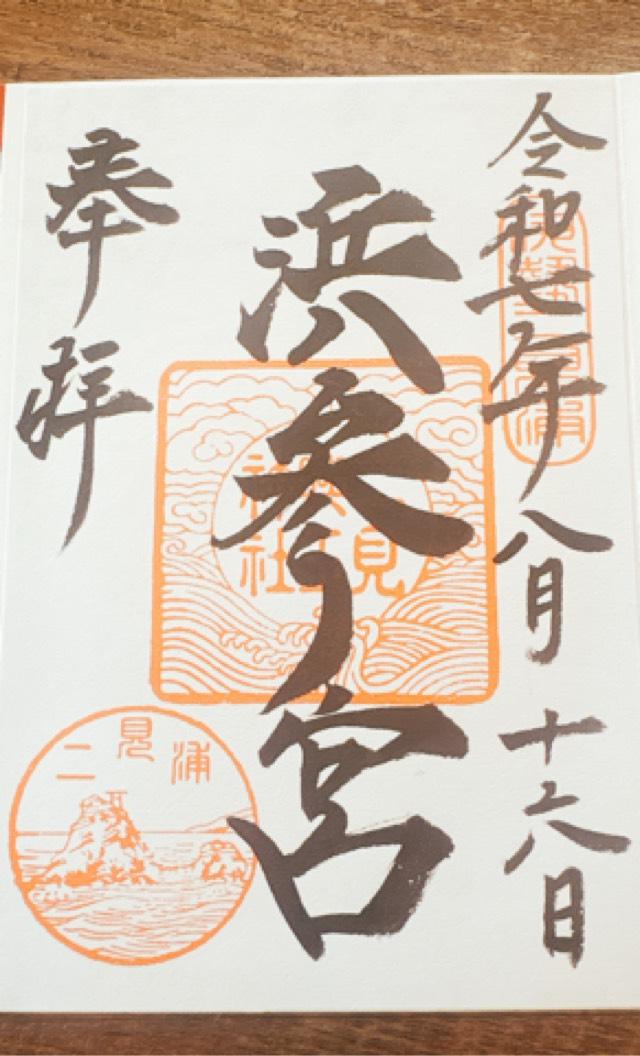 令和七年八月十六日
伊勢二見浦
浜参宮
二見興玉神社
奉拝
二見浦